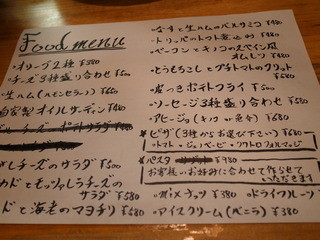 Food menu
・オリーブ2種 ¥380
・チーズ3種盛り合わせ ¥500
・生ハム(ハモンセラーノ) ¥680
自家製オイルサーディン ¥480
しチーズのサラダ ¥580
カドとモッツァレラチーズの
サラダ ¥580
ドと海老のマヨチリ ¥680
・なすと生ハムのバルサミコ ¥480
・トリッパのトマト煮込み ¥480
・ベーコンとキノコのスペイン風
オムレツ ¥480
・とうもろこしとプチトマトのフリット
¥680
・皮つきポテトフライ ¥500
・ソーセージ3種盛り合わせ ¥580
・アヒージョ ¥680
・ピザ(3種からお選び下さい) ¥680
・トマト・ジェノベーゼ・クワトロフォルマッジ
・パスタ ¥980
お客様のお好みに合わせて作らせて
いただきます
・mixナッツ ¥380 ・ドライフルーツ
・アイスクリーム(バニラ) ¥380